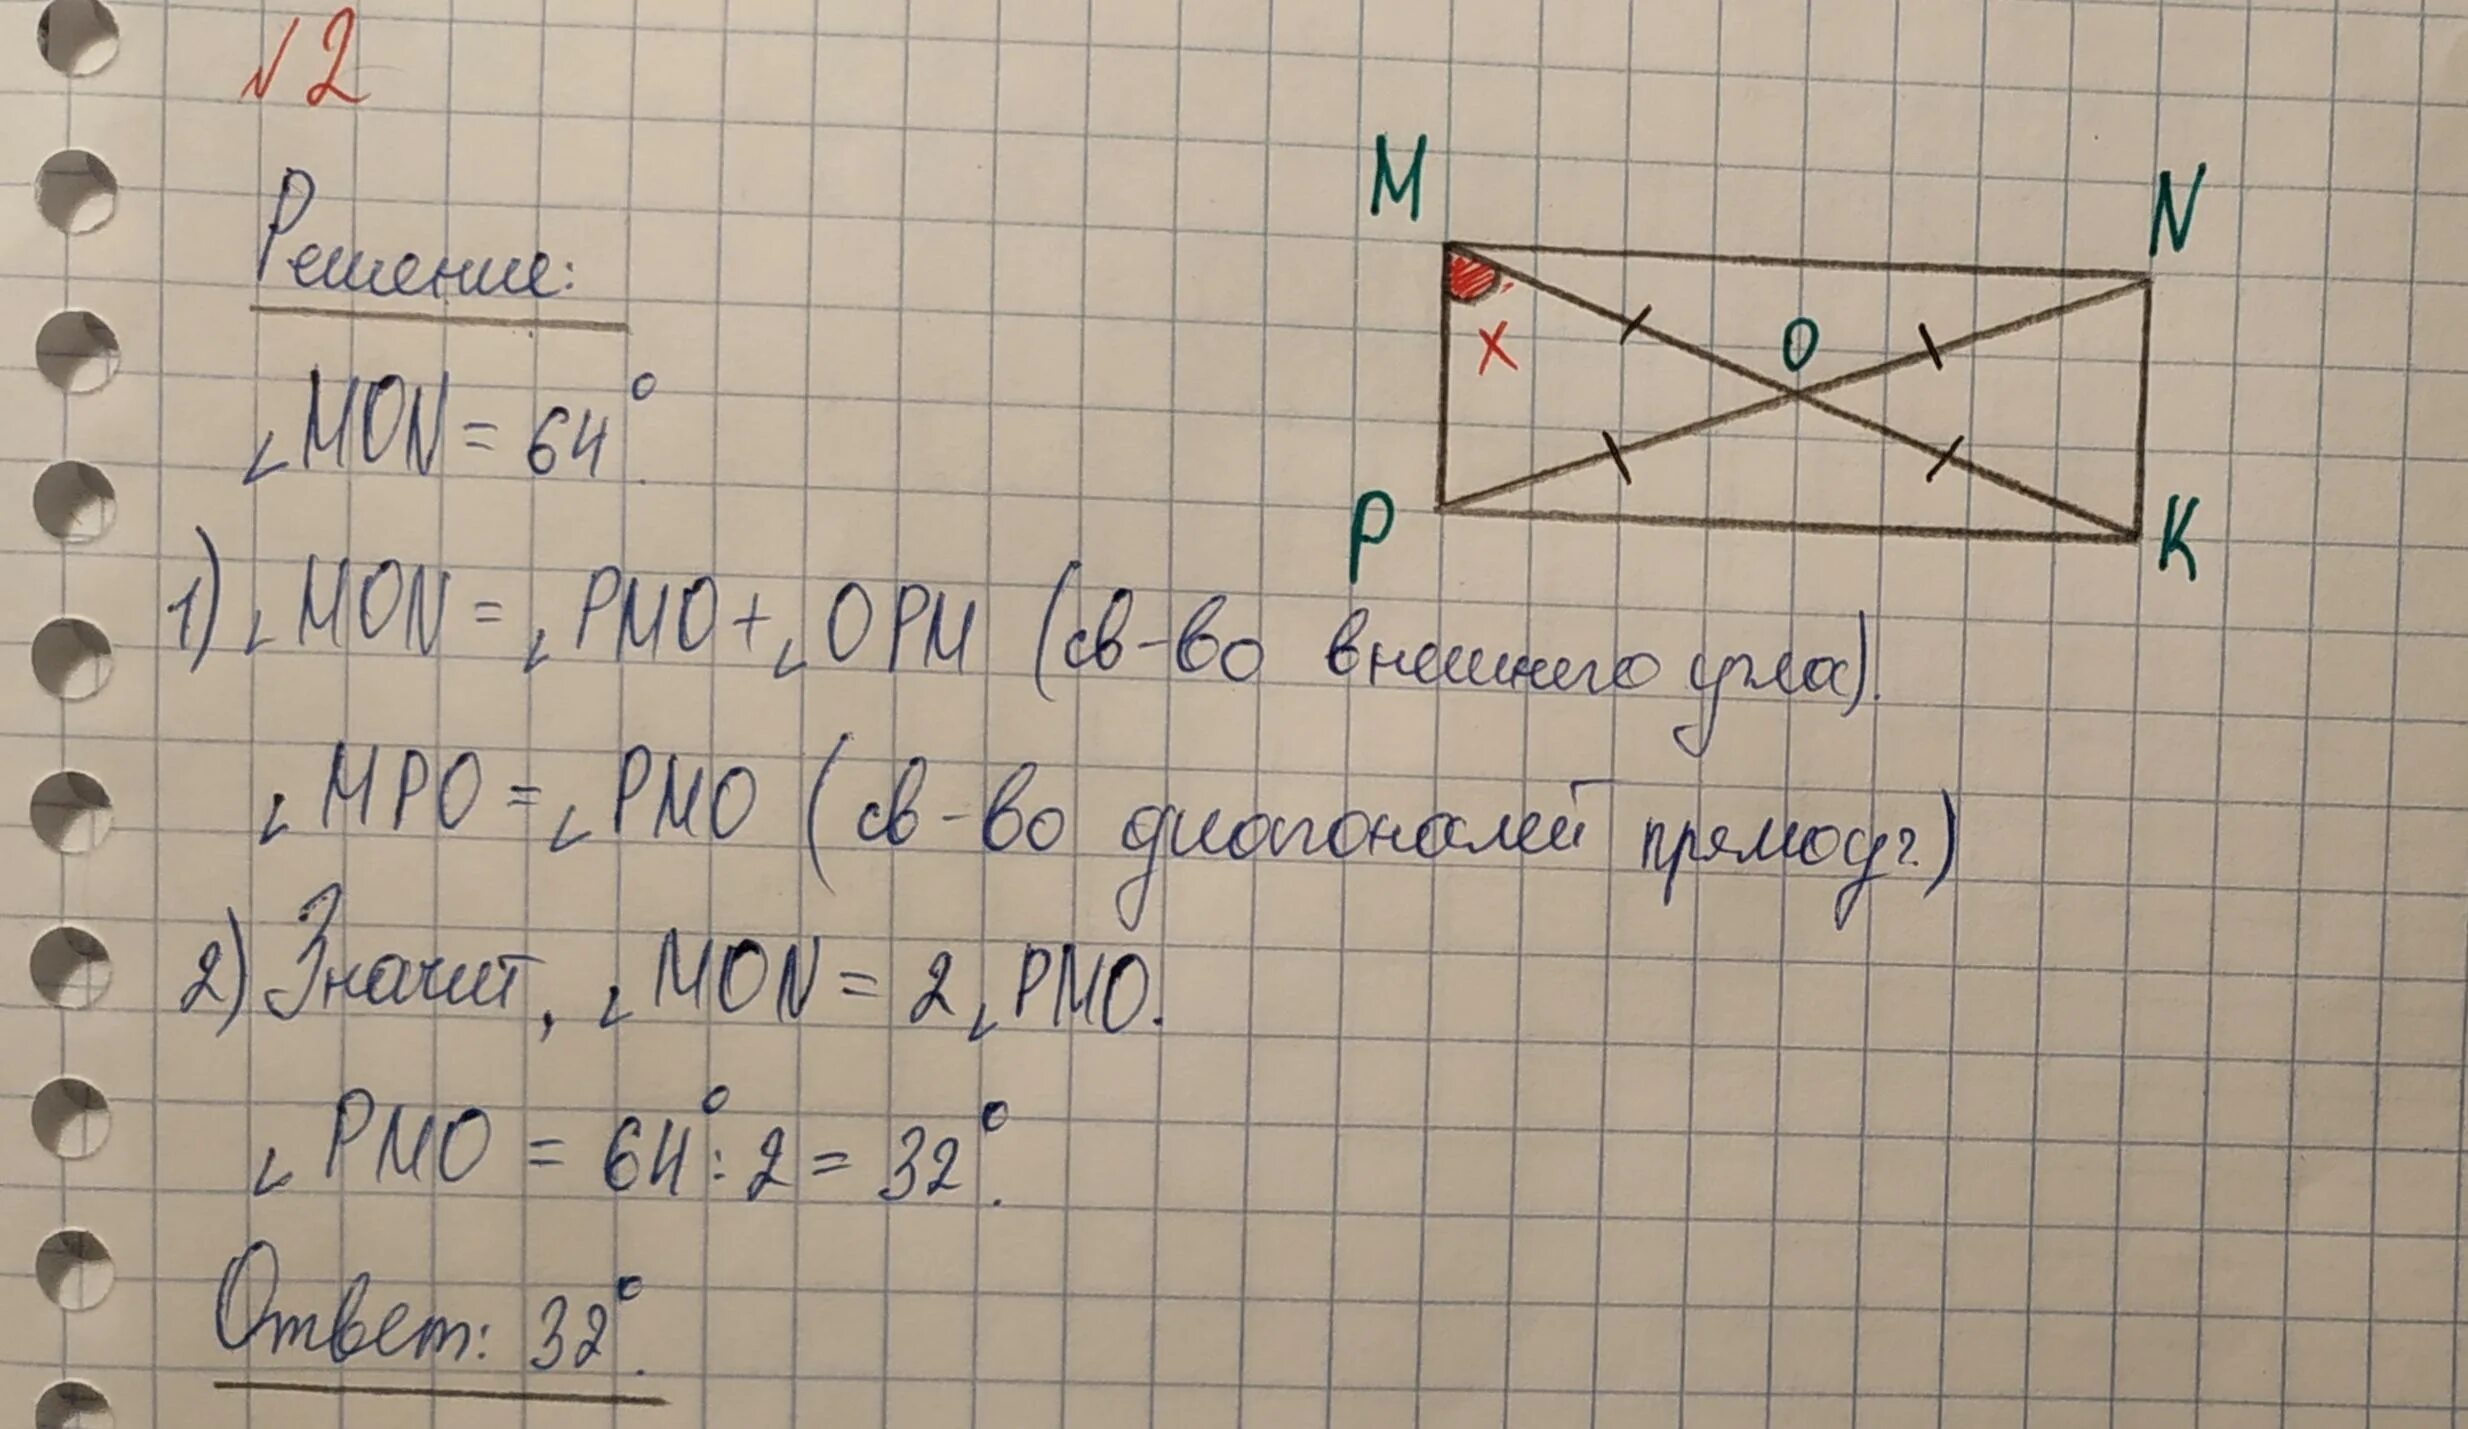 №2
Решение:
M
N
O
X
P
K
∠MON = 64°.
1) ∠MON = ∠PMO + ∠OPM (св-во внешнего угла).
∠MPO = ∠PMO (св-во диагоналей прямоуг.)
2) Значит, ∠MON = 2∠PMO.
∠PMO = 64° : 2 = 32°.
Ответ: 32°.